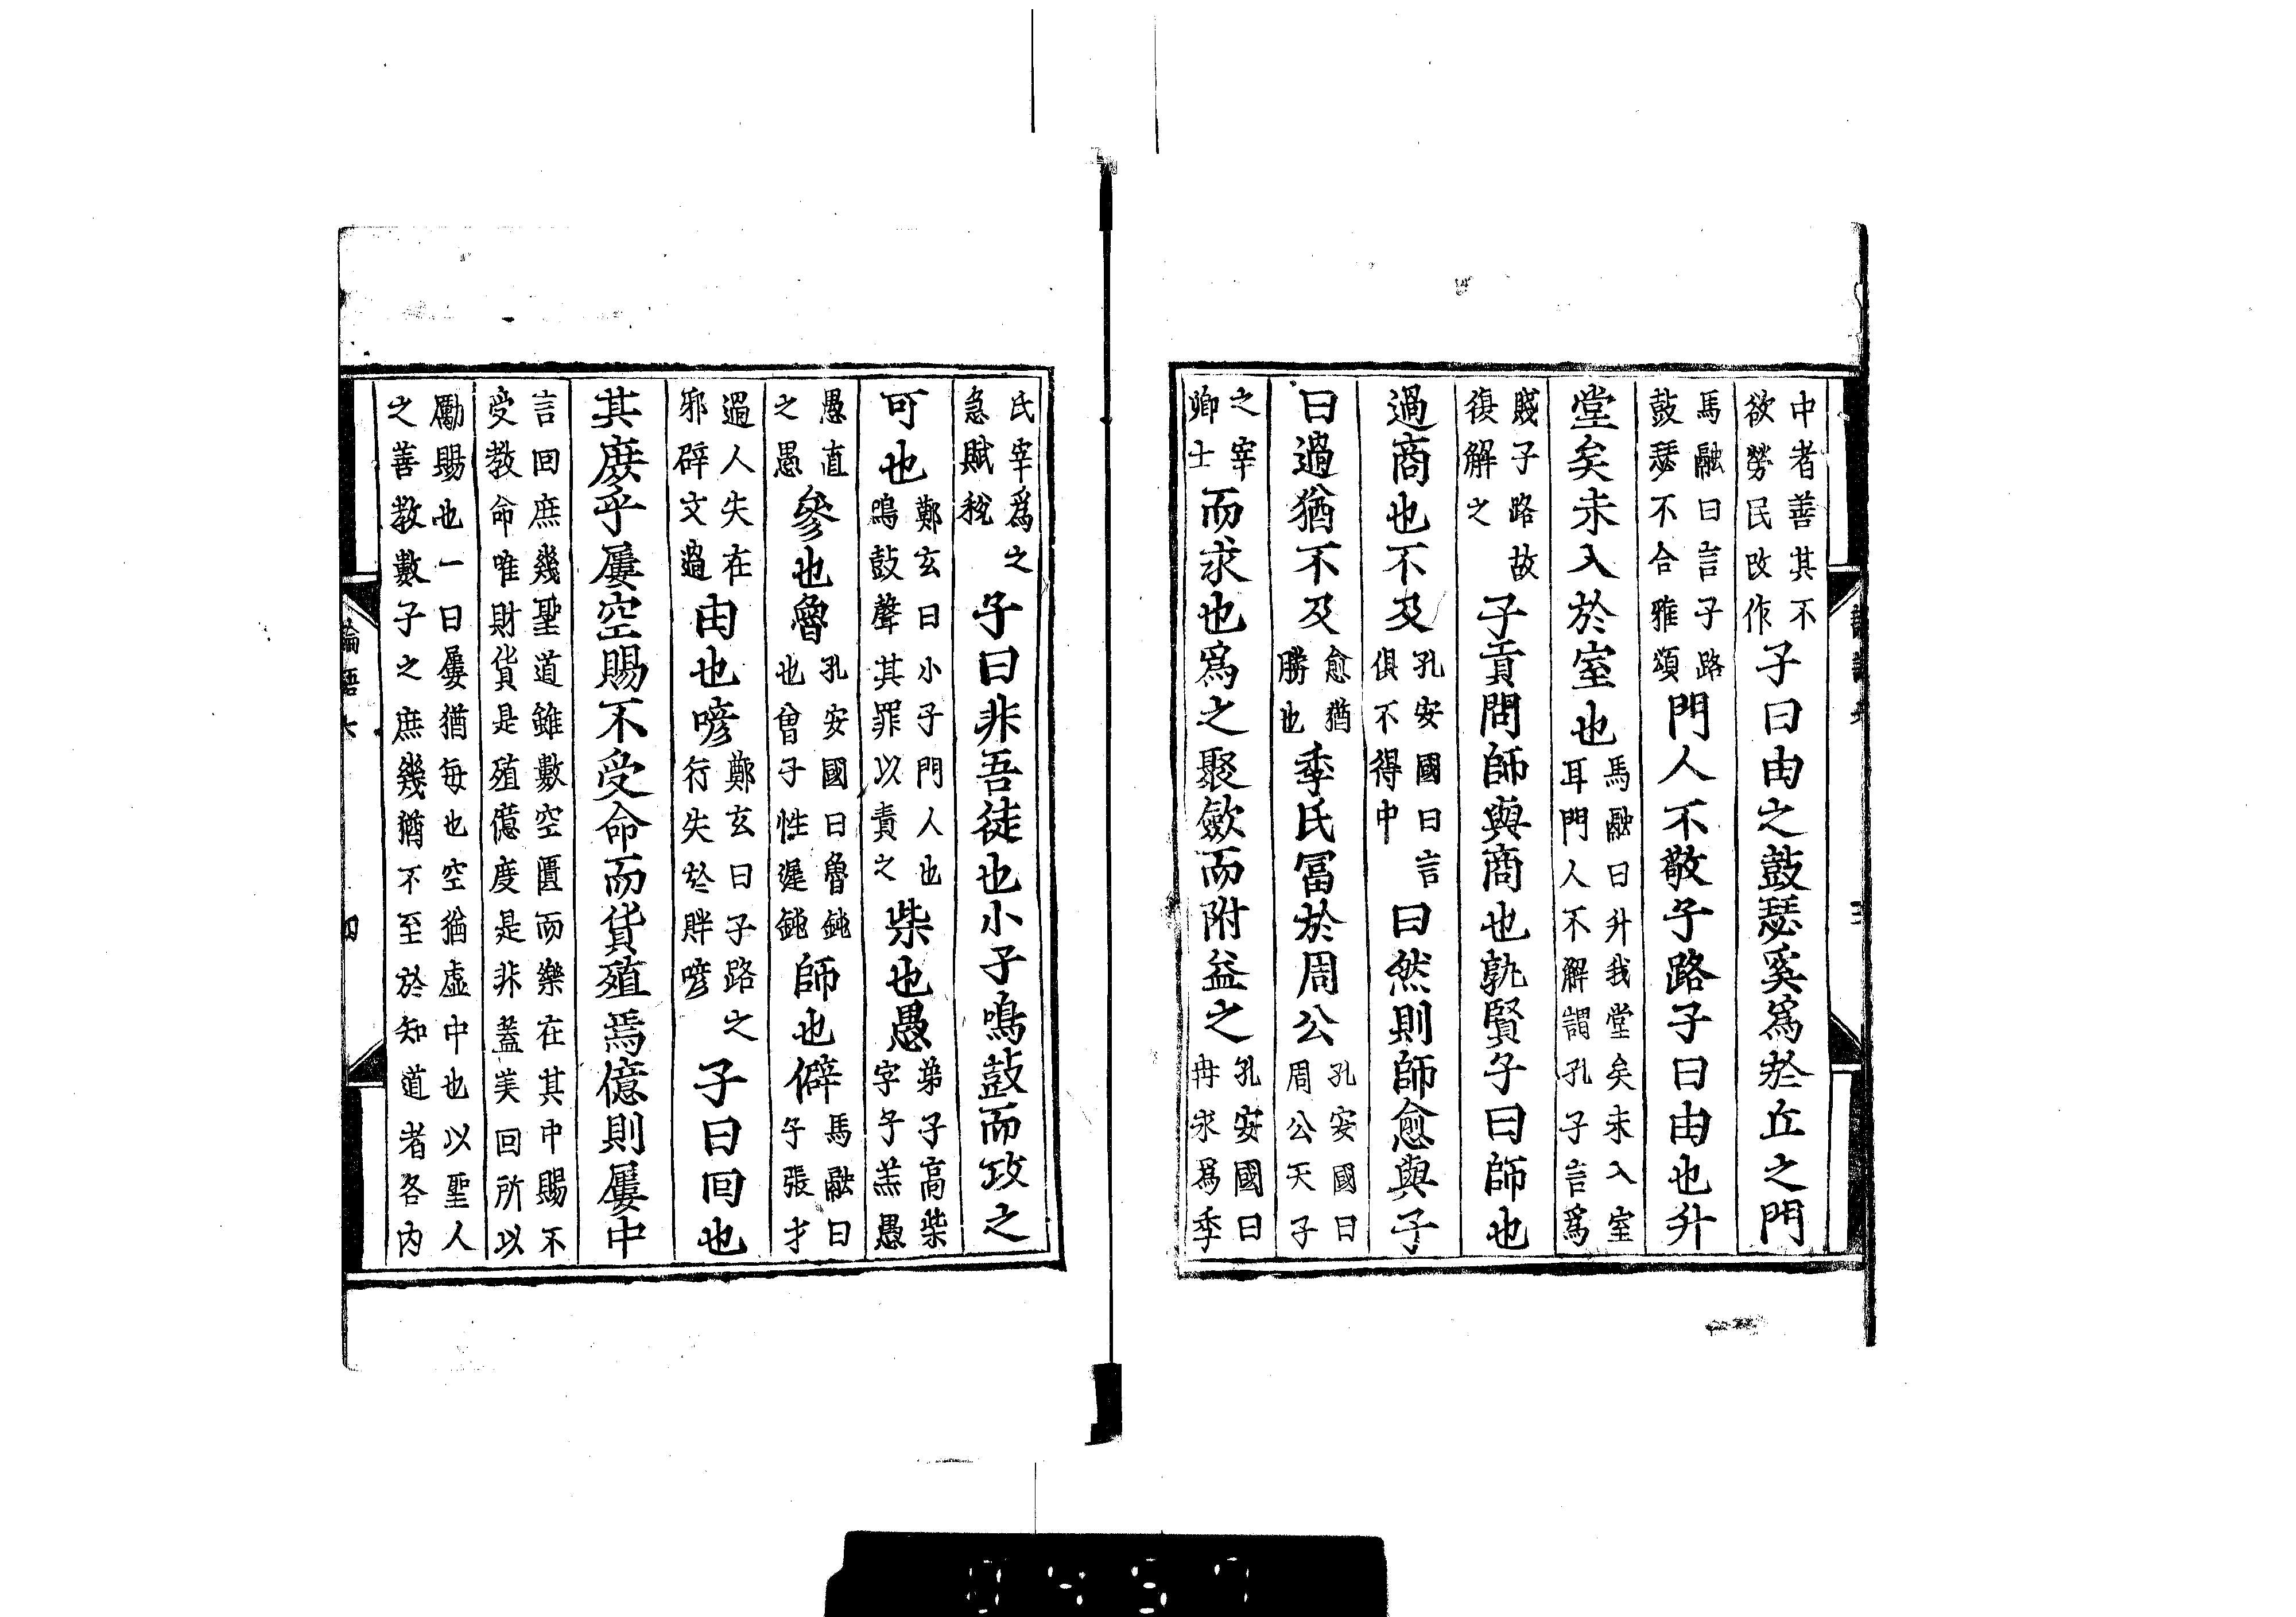 中者善其不
欲勞民改作
子曰由之鼓瑟奚爲於丘之門
馬融曰言子路
鼓瑟不合雅頌
門人不敬子路子曰由也升
堂矣未入於室也
馬融曰升我堂矣未入室
耳門人不解謂孔子言爲
賤子路故
復解之
子貢問師與商也孰賢子曰師也
過商也不及
孔安國曰言
俱不得中
曰然則師愈與子
曰過猶不及
愈猶
勝也
季氏冨於周公
孔安國曰
周公天子
之宰
卿士
而求也爲之聚斂而附益之
孔安國曰
冉求爲季
氏宰爲之
急賦稅
子曰非吾徒也小子鳴鼓而攻之
可也
鄭玄曰小子門人也
鳴鼓聲其罪以責之
柴也愚
弟子高柴
字子羔愚
愚直
之愚
參也魯
孔安國曰魯鈍
也曾子性遲鈍
師也僻
馬融曰
子張才
過人失在
邪辟文過
由也喭
鄭玄曰子路之
行失於畔喭
子曰回也
其庶乎屢空賜不受命而貨殖焉億則屢中
言回庶幾聖道雖數空匱而樂在其中賜不
受教命唯財貨是殖億度是非蓋美回所以
勵賜也一曰屢猶每也空猶虛中也以聖人
之善教數子之庶幾猶不至於知道者各内
論語六
四